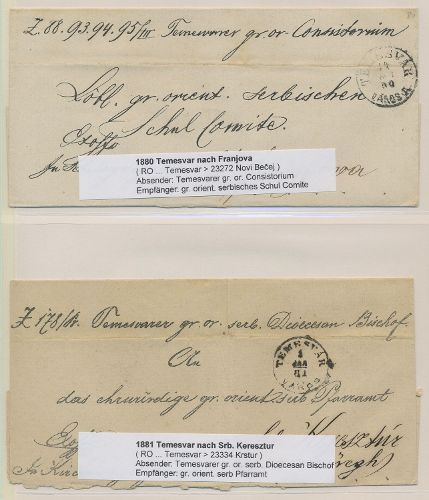 Z. 88. 93. 94. 95/III Temesvarer gr. or. Consistorium
TEMESVÁR
VÁROS
Löbl. gr. orient. serbischen
Schul Comite.
Exoffo
1880 Temesvar nach Franjova
( RO ... Temesvar > 23272 Novi Bečej )
Absender: Temesvarer gr. or. Consistorium
Empfänger: gr. orient. serbisches Schul Comite
Z 178/ Temesvarer gr. or. serb. Dioecesan Bischof
An
TEMESVÁR
1
81
VÁROS
das ehrwürdige gr. orient. serb Pfarramt
1881 Temesvar nach Srb. Keresztur
( RO ... Temesvar > 23334 Krstur )
Absender: Temesvarer gr. or. serb. Dioecesan Bischof
Empfänger: gr. orient. serb Pfarramt